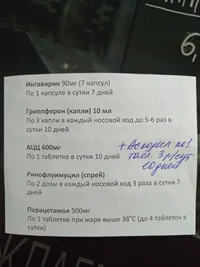 6,
Ингавирин 90мг (7 капсул)
По 1 капсуле в сутки 7 дней
Гриппферон (капли) 10 мл
По 3 капли в каждый носовой ход до 5-6 раз в
сутки 10 дней
АЦЦ 600мг
По 1 таблетке в сутки 10 дней
+ Аскорил по 1
табл. 3 р/сут
10 дней
Ринофлуимуцил (спрей)
По 2 дозы в каждый носовой ход 3 раза в сутки 7
дней
Парацетамол 500мг
По 1 таблетке при жаре выше 38°С (до 4 таблеток в
сутки)